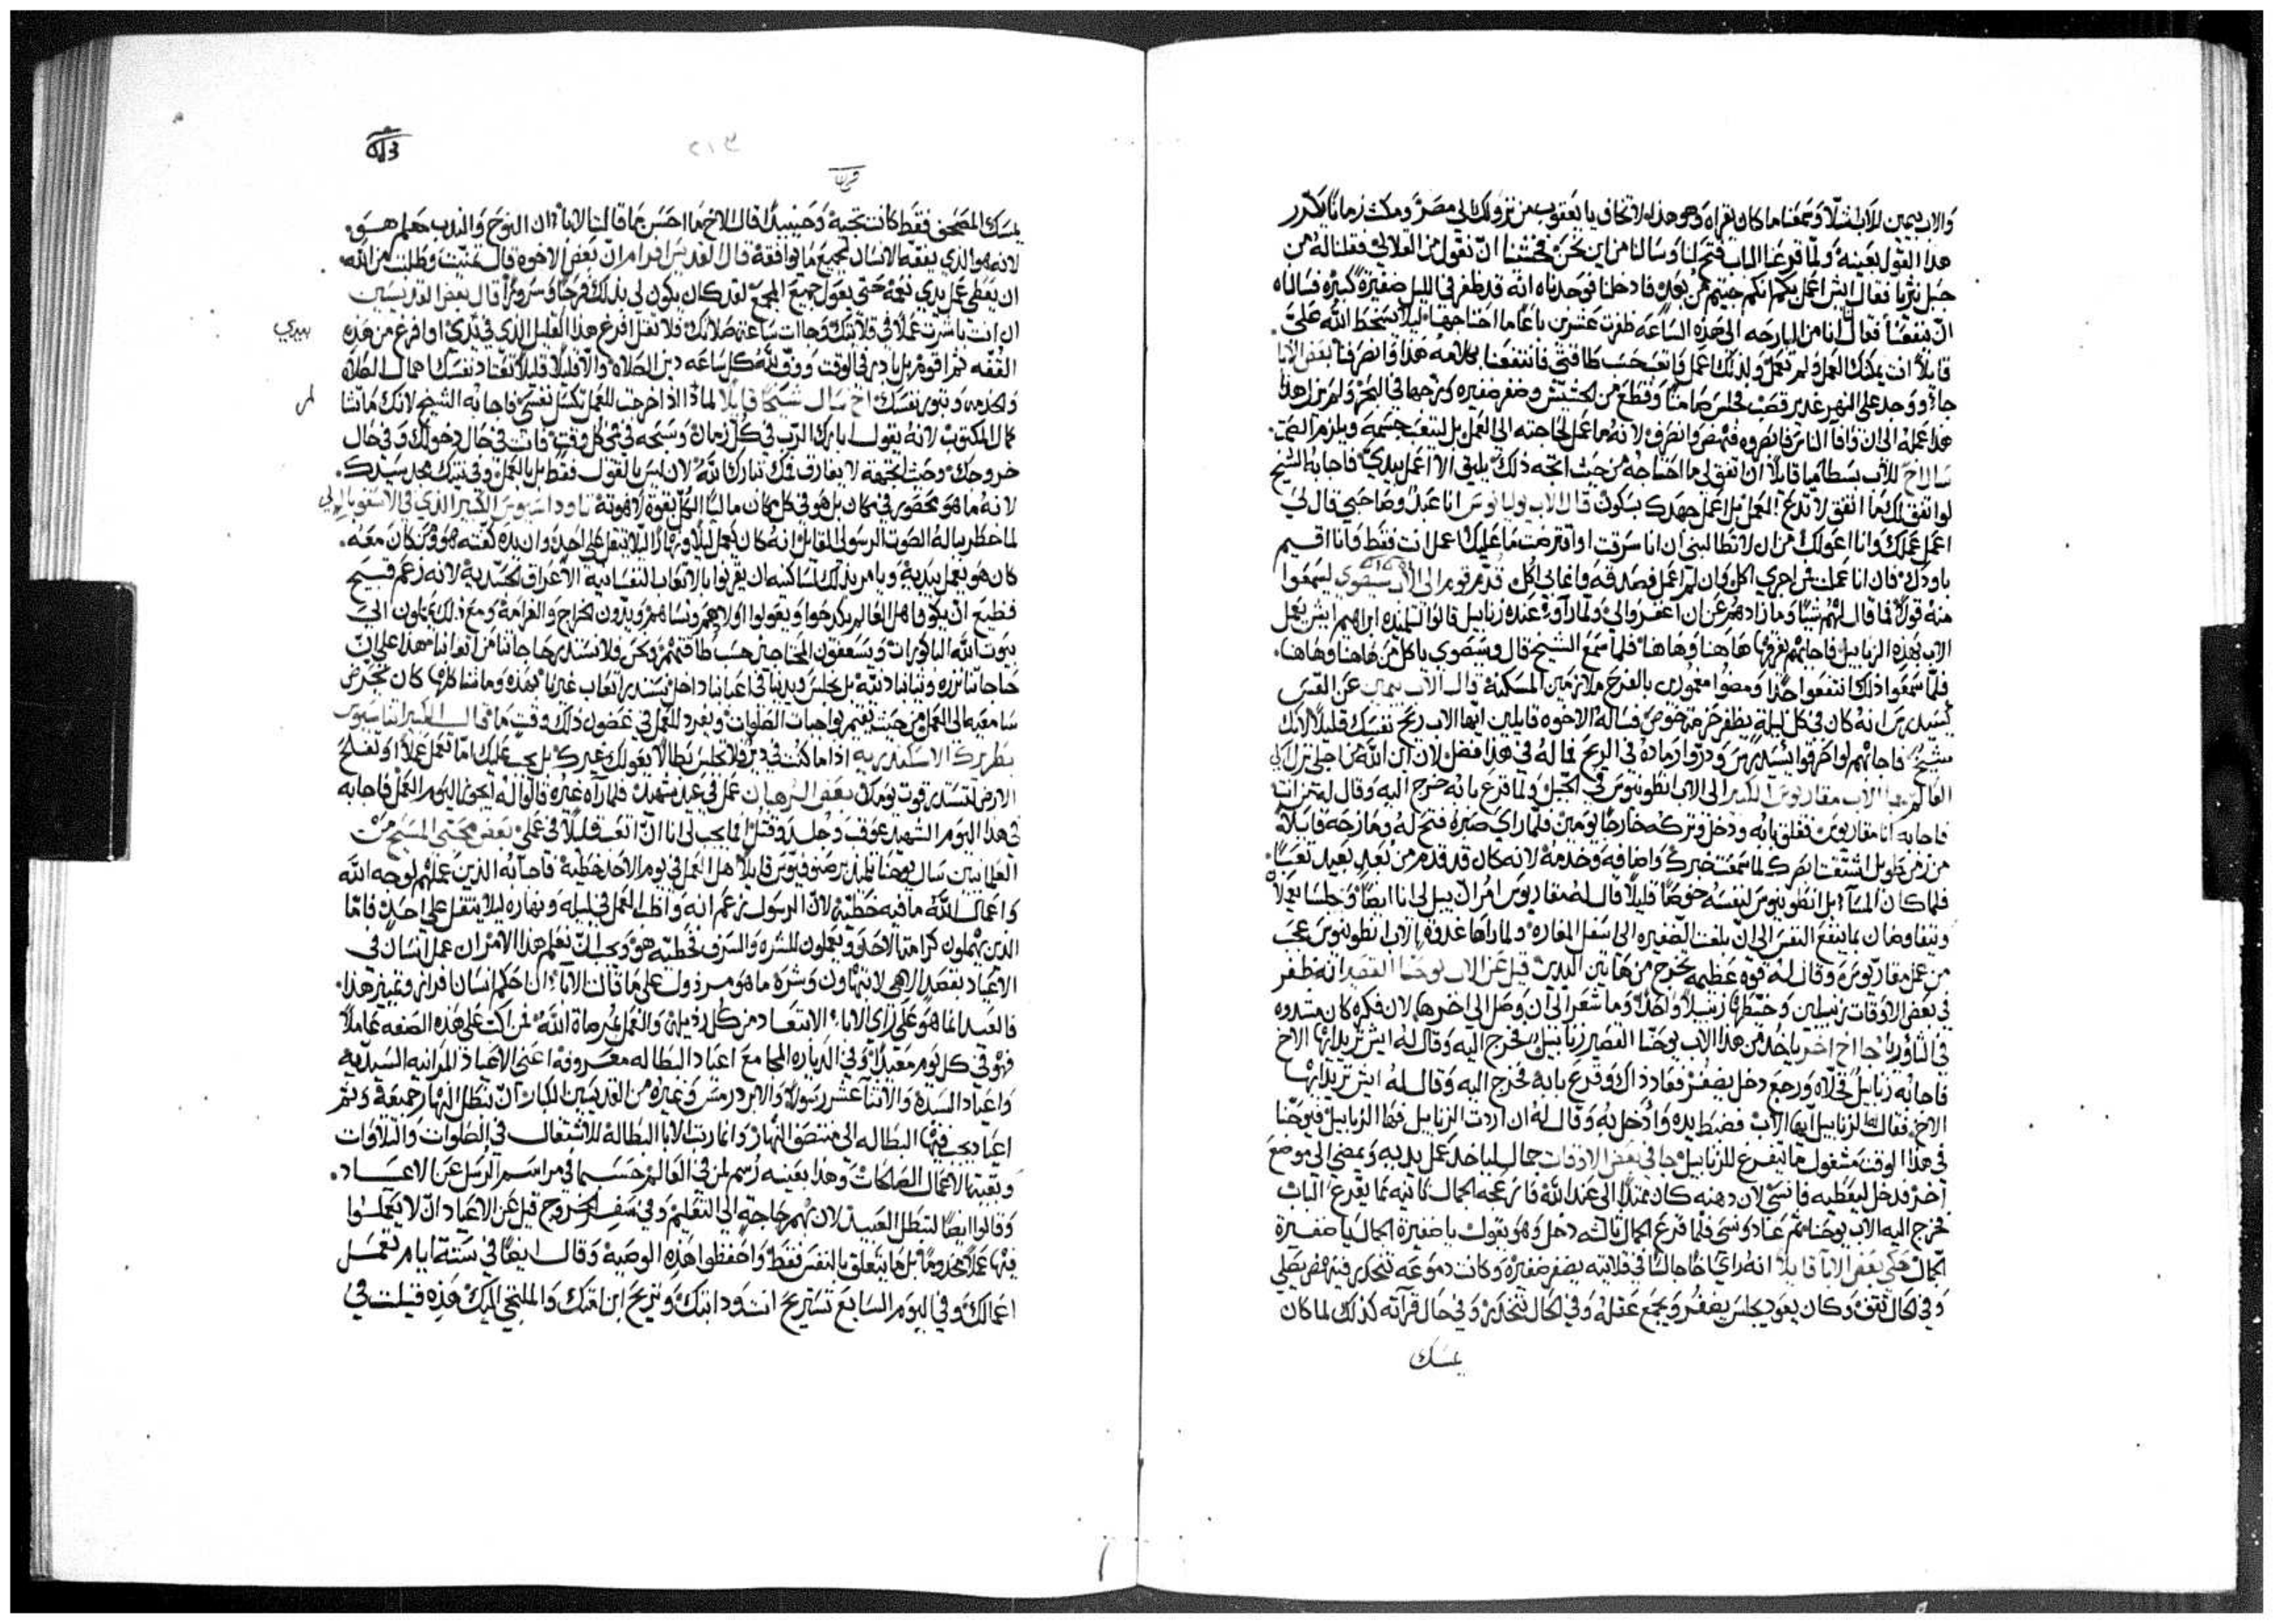 والاب بيمين للاب ايتلا وسمعنا ما كان يقراه وهو هذا لا تخاف يا يعقوب من نزولك الى مصر ومكث زمانا يكرر
هذا القول بعينه ولما قرعنا الباب فتح لنا وسالنا من اين نحن فخشينا ان نقول من القلالي فقلنا له من
جبل نتريا فقال ايش اعمل بكم انكم جيتم من بعد فادخلنا فوجدناه انه قد ظفر في الليل ضفيرة كبيره فسالناه
ان ينفعنا فقال انا من البارحه الى هذه الساعه ظفرت عشرين باعا ما احتاجها ليلا يسخط الله علي
قايلا انت يمكنك العمل ولم تعمل ولذلك اعمل واتعب حسب طاقتي فانتفعنا بكلامه هذا وانصرفنا بعض الابا
جاء ووجد على النهر غدير قصب فجلس صامتا وقطع من الحشيش وضفر ضفيره وطرحها في البحر ولم يزل هذا
هذا عمله الى ان وافا الناس فابصروه فنهض وانصرف لانه ما عمل لحاجته الى العمل بل ليتعب جسمه ويلزم الصمت
سال اخ للاب بسطاميا قايلا ان اتفق لي ما احتاجه من حيث اتجه ذلك يليق الا اعمل بيدي فاجابه الشيخ
لو اتفق لك ما اتفق لا تدع العمل بل اعمل جهدك بسكون قال الاب ولبانوس انا عبد وصاحبي قال لي
اعمل عملك وانا اعولك من ان لا تطالبني ان انا سرقت او اقترحت ما عليك اعمل انت فقط وانا اقيم
باودك فان انا عملت فمن اجرتي اكل وان لم اعمل فصدقه وانما لي اكل قدم قوم الى الاب سيصوي ليسمعوا
منه قولا فما قال لهم شيا وما زادهم عن ان اغفروا لي ولما راوا عنده زنابيل قالوا لتلميذه ابراهيم ايش يعمل
الاب بهذه الزنابيل فاجابهم يفرقها هاهنا وهاهنا فلما سمع الشيخ قال وسيصوي ياكل من هاهنا وهاهنا
فلما سمعوا ذلك انتفعوا جدا ومضوا مغمورين بالفرح ملازمين المسكنة قال الاب بيمين عن القس
ايسيدرس انه كان في كل ليلة يظفر حزمة خوص فساله الاخوه قايلين ايها الاب ريح نفسك قليلا لانك
شيخ فاجابهم لو احرقوا ايسيدرس وذروا رماده في الريح فما له في هذا فضل لان ابن الله من اجلي نزل الى
العالم جا الاب مقاريوس الكبير الى الاب انطونيوس في الجبل ولما قرع بابه خرج اليه وقال له من انت
فاجابه انا مقاريوس فغلق بابه ودخل وتركه خارجا يومين فلما راى صبره فتح له ومازحه قايلا له
من زمن طويل اشتقت ابصرك لما سمعت خبرك واضافه وخدمه لانه كان قد قدم من بعد بعيد تعبا
فلما كان المسا بل انطونيوس لنفسه خوصا قليلا قال له مقاريوس امر ان يبل لي انا ايضا وجلسا يعملا
ويتفاوضان بما ينفع النفس الى ان بلغت الضفيره الى سفل المغاره ولما راها غدوة الاب انطونيوس عجب
من عمل مقاريوس وقال له قوة عظيمه تخرج من هاتين اليدين قيل عن الاب يوحنا القصير انه ظفر
في بعض الاوقات زنبيلين وخيطها زنبيلا واحدا وما شعر الى ان وصل الى اخرها لان فكره كان مشدوه
في الثاوريا جا اخ اخر ياخذ من هذا الاب يوحنا القصير زنابيل فخرج اليه وقال له ايش تريد ايها الاخ
فاجابه زنابيل فخلاه ورجع دخل يضفر فعاد ذاك وقرع بابه فخرج اليه وقال له ايش تريد ايها
الاخ فقال الزنابيل ايها الاب فضبط يده وادخل به وقال له ان اردت الزنابيل فها الزنابيل فيوحنا
في هذا الوقت مشغول ما يتفرغ للزنابيل جا في بعض الاوقات جمال لياخذ عمل يديه ويمضي الى موضع
اخر فدخل ليعطيه فانسي لان ذهنه كان ممتدا الى عند الله فازعجه الجمال ثانيه بما يقرع الباب
فخرج اليه الاب يوحنا ثم عاد ونسى فلما قرع الجمال ثالثه دخل وهو يقول يا ضفيرة الجمال يا ضفيرة
الجمال حكى بعض الابا قايلا انه راى اخا جالسا في قلايته يضفر ضفيره وكانت دموعه تنحدر فينهض يصلي
وفي الحال تقف وكان يعود يجلس يضفر ويجمع عقله وفي الحال تنحدر وفي حال قراته كذلك لما كان
يمسك
٢١٣
يمسك المصحف فقط كانت تجيه وحينيذ قال الاخ ما احسن ما قالت الابا ان النوح والندب معلم هو
لانه هو الذي يفقه الانسان لجميع ما يوافقه قال القديس افرام ان بعض الاخوه قال تمنيت وطلبت من الله
ان يعطي عمل يدي نعمه حتى يعول جميع المجمع لقد كان يكون لي بذلك فرحا وسرورا قال بعض القديسين
ان انت باشرت عملا في قلايتك وجاات ساعة صلاتك فلا تقل افرغ هذا القليل الذي في يدي او افرغ من هذه
بيدي
القفه ثم اقوم بل بادر في الوقت ووف لله كل ساعه دين الصلاه والا قليلا قليلا تعتاد نفسك اهمال الصلاه
والخدمه وتبور نفسك اخ سال شيخا قايلا لماذا اذا خرجت للعمل تكسل نفسي فاجابه الشيخ لانك ما تشا
كمال المكتوب لانه يقول ابارك الرب في كل زمان وسبحه في في كل وقت فانت في حال دخولك وفي حال
خروجك وحيث اتجهت لا يفارق فمك تبارك الله لان ليس بالقول فقط بل بالعمل وفي نيتك مجد سيدك
لانه ما هو محصور في مكان بل هو في كل مكان مالئا الكل بقوة لاهوته ثاودوسيوس الكبير الذي في الاسقوبالي
لما خطر بباله الصوت الرسولي القايل انه كان يعمل ليلا ونهارا ليلا يثقل على احد وان يده كفته هو ومن كان معه
كان هو يعمل بيديه ويامر بذلك لساكنيه ان يقرنوا بالاتعاب النفسانيه الاعراق الجسديه لانه زعم قبيح
فظيع ان يكونوا اهل العالم يكدحوا ويعولوا اولادهم ونساهم ويدون الخراج والغرامه ومع ذلك يحملون الى
بيوت الله الباكورات ويسعفون المحتاجين حسب طاقتهم ونحن فلا نستد برحاجاتنا من اتعابنا هذا على ان
حاجاتنا نزره وثيابنا دنيه بل نجلس ويدينا في اعبابنا داخل نستد باتعاب غيرنا بهذه وما شاكلها كان يحرض
سامعيه الى العمل من حيث يقيم بواجبات الصلوات ويفرد للعمل في غضون ذلك وقت ما قال الكبير اثناسيوس
بطريرك الاسكندريه اذا ما كنت في دير فلا تجلس بطالا يعولك غيرك بل يجب عليك اما تعمل عملا او تفلح
الارض لتستد قوت يومك بعض الرهبان عمل في عيد شهيد فلما راه غيره قالوا له ايجوز اليوم العمل فاجابه
في هذا اليوم الشهيد عوقب وجلد وقتل افما يجب لي انا ان اتعب قليلا في عملي بعض محبي المسيح من
العلمانيين سال يوحنا تلميذ برصنوفيوس قايلا هل العمل في يوم الاحد خطيه فاجابه الذين عملهم لوجه الله
واعمال الله ما فيه خطيه لان الرسول زعم انه واظب العمل في ليله ونهاره ليلا يثقل على احد فاما
الذين يهملون كرامة الاحد ويعملون للشره والسرف فخطيه هو ويجب ان نعلم هذا الامر ان عمل انسان في
الاعياد بقصد الاهي لا بتهاون وشره ما هو مرذول على ما قالت الابا ان حكم انسان فرازه وتمييزه هذا
فالعيد انما هو على راي الابا الابتعاد من كل رذيله والعمل بمرضاة الله فمن اكب على هذه الصفه عاملا
فهو في كل يوم معيد وفي الدياره المجامع اعياد البطاله معروفه اعني الاعياد المرانيه السيديه
واعياد السيدة والاثنا عشر رسولا والابرودرمس وغيره من القديسين الكبار ان تبطل النهار جميعه وثم
اعياد يجب فيها البطاله الى منتصف النهار وانما رتبت الابا البطالة للاشتغال في الصلوات والتلاوات
وبقية الاعمال الصالحات وهذا بعينه رسم لمن في العالم حسبما في مراسيم الرسل عن الاعياد
وقالوا ايضا لتبطل العبيد لان بهم حاجة الى التعليم وفي سفر الخروج قيل عن الاعياد ان لا يعملوا
فيها عملا مخدوما بل ما يتعلق بالنفس فقط واحفظوا هذه الوصية وقال ايضا في ستة ايام تعمل
اعمالك وفي اليوم السابع تستريح انت ودابتك ويتريح ابن امتك والملتجي اليك هذه قيلت في